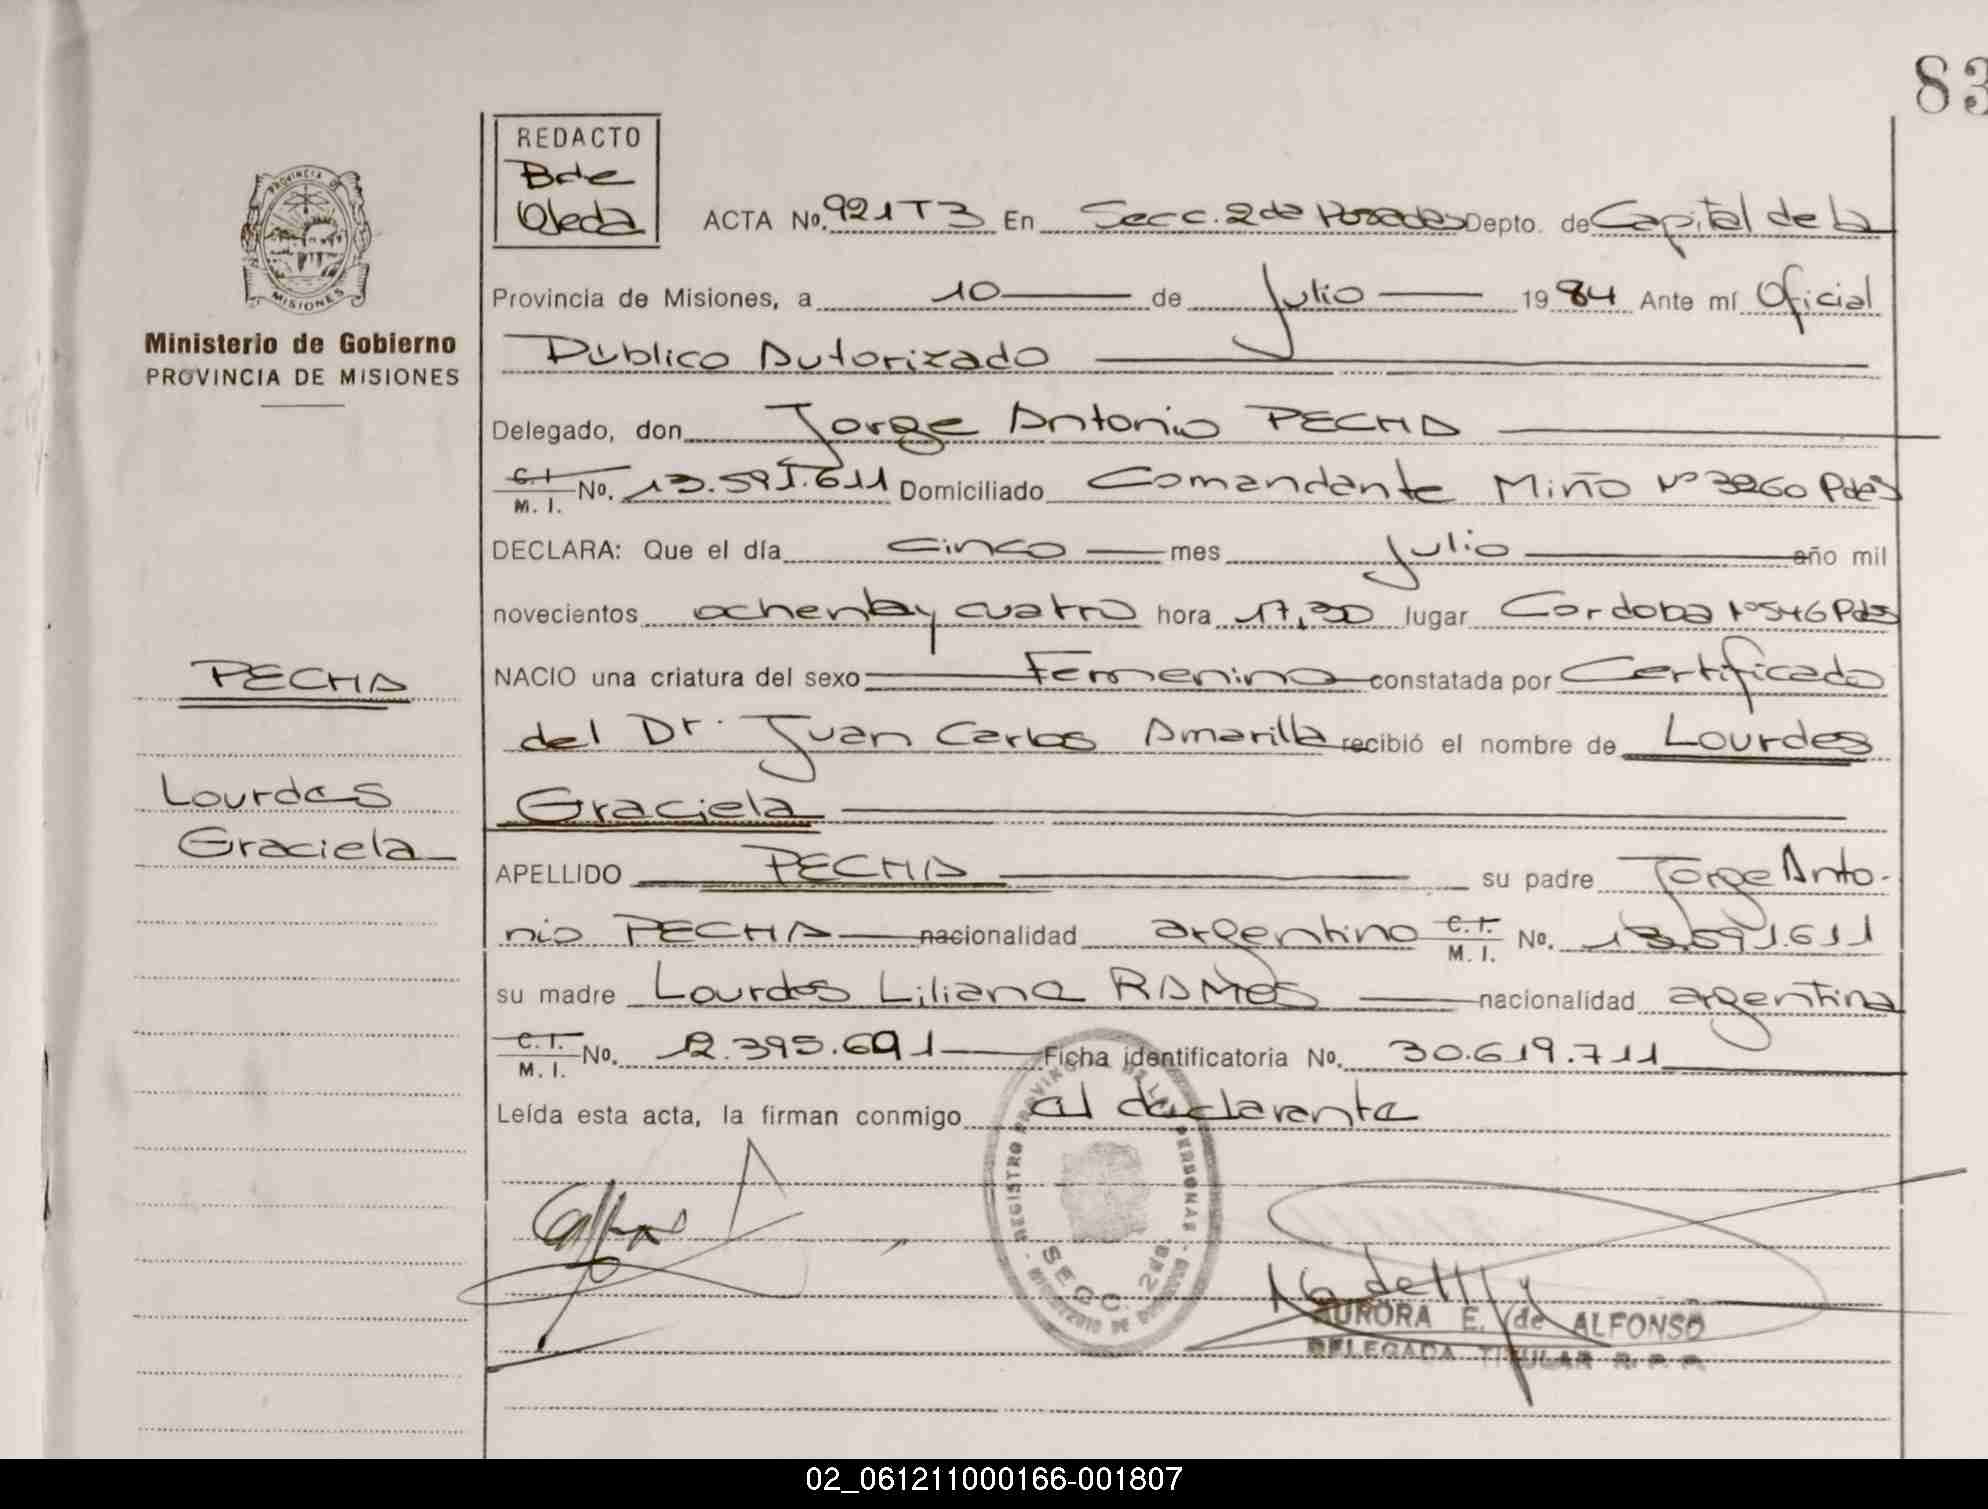 83
REDACTO
Bde
Ojeda
PROVINCIA DE
MISIONES
Ministerio de Gobierno
PROVINCIA DE MISIONES
ACTA No. 921 T3 En Secc. 2da Posadas Depto. de Capital de la
Provincia de Misiones, a 10 de Julio 1984 Ante mí Oficial
Público Autorizado
Delegado, don Jorge Antonio PECHA
C.I. M. I. No. 13.591.611 Domiciliado Comandante Miño Nº 3260 Pdas
DECLARA: Que el día cinco mes Julio año mil
novecientos ochenta y cuatro hora 17,30 lugar Cordoba Nº 546 Pdas
PECHA
NACIO una criatura del sexo Femenino constatada por Certificado
del Dr. Juan Carlos Amarilla recibió el nombre de Lourdes
Lourdes
Graciela
Graciela
APELLIDO PECHA su padre Jorge Anto-
nio PECHA nacionalidad argentino C.I. M. I. No. 13.591.611
su madre Lourdes Liliana RAMOS nacionalidad argentina
C.I. M. I. No. 12.395.691 Ficha identificatoria No. 30.619.711
Leída esta acta, la firman conmigo el declarante
REGISTRO PROVINCIAL DE LAS PERSONAS
SECC. 2da
MINISTERIO DE GOBIERNO
AURORA E. de ALFONSO
DELEGADA TITULAR R. P. P.
02_061211000166-001807